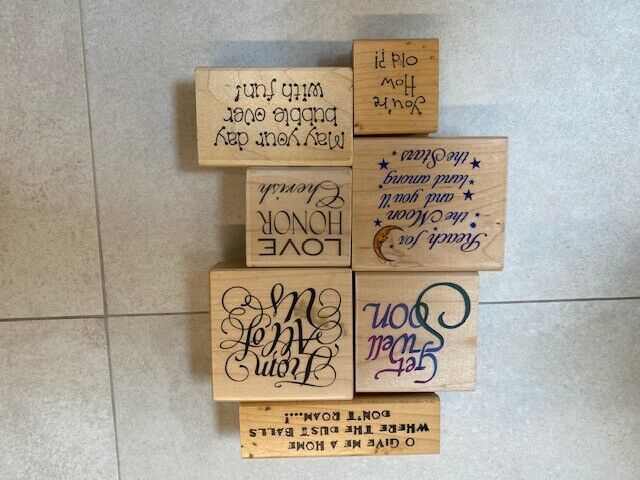 O GIVE ME A HOME
WHERE THE DUST BALLS
DON'T ROAM...!
Get
Well
Soon
From
All of
Us
LOVE
HONOR
Cherish
Reach for
the Moon
and you'll
land among
the Stars
May your day
bubble over
with fun!
You're
How
old?!